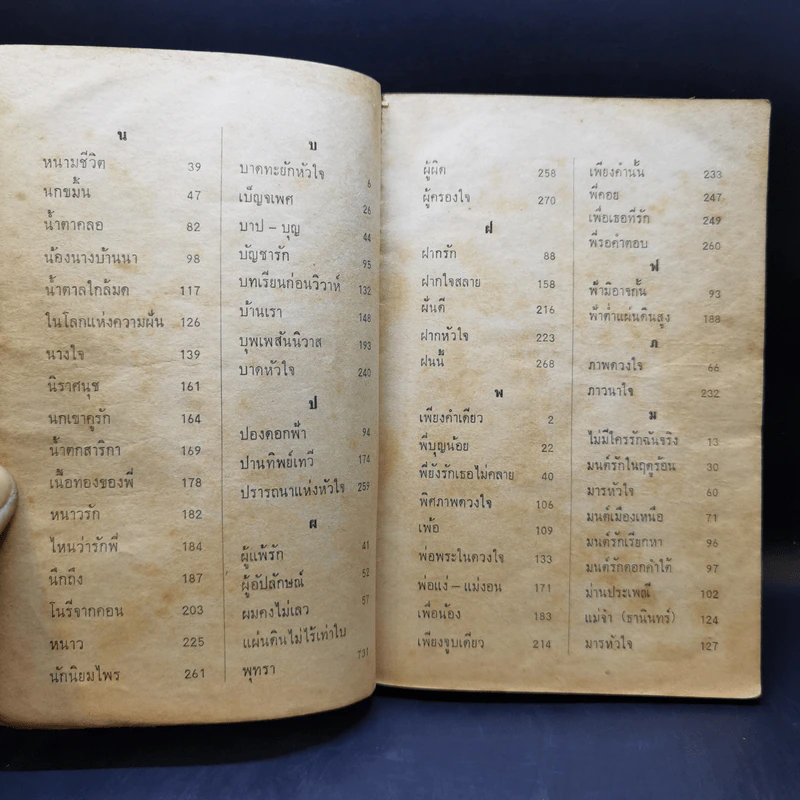 น
หนามชีวิต 39
นกขมิ้น 47
น้ำตาคลอ 82
น้องนางบ้านนา 98
น้ำตาลใกล้มด 117
ในโลกแห่งความฝัน 126
นางใจ 139
นิราศนุช 161
นกเขาคูรัก 164
น้ำตกสาริกา 169
เนื้อทองของพี่ 178
หนาวรัก 182
ไหนว่ารักพี่ 184
นึกถึง 187
โนรีจากคอน 203
หนาว 225
นักนิยมไพร 261
บ
บาดทะยักหัวใจ 6
เบ็ญจเพศ 26
บาป – บุญ 44
บัญชารัก 95
บทเรียนก่อนวิวาห์ 132
บ้านเรา 148
บุพเพสันนิวาส 193
บาดหัวใจ 240
ป
ปองดอกฟ้า 94
ปานทิพย์เทวี 174
ปรารถนาแห่งหัวใจ 259
ผ
ผู้แพ้รัก 41
ผู้อัปลักษณ์ 52
ผมคงไม่เลว 57
แผ่นดินไม่ไร้เท่าใบ
พุทรา 731
ผู้ผิด 258
ผู้ครองใจ 270
ฝ
ฝากรัก 88
ฝากใจสลาย 158
ฝันดี 216
ฝากหัวใจ 223
ฝนนี้ 268
พ
เพียงคำเดียว 2
พี่บุญน้อย 22
พี่ยังรักเธอไม่คลาย 40
พิศภาพดวงใจ 106
เพ้อ 109
พ่อพระในดวงใจ 133
พ่อแง่ – แม่งอน 171
เพื่อน้อง 183
เพียงจูบเดียว 214
เพียงคำนั้น 233
พี่คอย 247
เพื่อเธอที่รัก 249
พี่รอคำตอบ 260
ฟ
ฟ้ามิอาจกั้น 93
ฟ้าต่ำแผ่นดินสูง 188
ภ
ภาพดวงใจ 66
ภาวนาใจ 232
ม
ไม่มีใครรักฉันจริง 13
มนต์รักในฤดูร้อน 30
มารหัวใจ 60
มนต์เมืองเหนือ 71
มนต์รักเรียกหา 96
มนต์รักดอกคำใต้ 97
ม่านประเพณี 102
แม่จ๋า (ธานินทร์) 124
มารหัวใจ 127